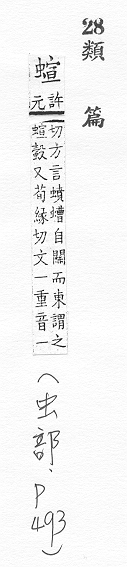 28類篇
蝖
許元切方言蠀螬自關而東謂之
蝖瑴又荀緣切文一重音一
(虫部．P493)